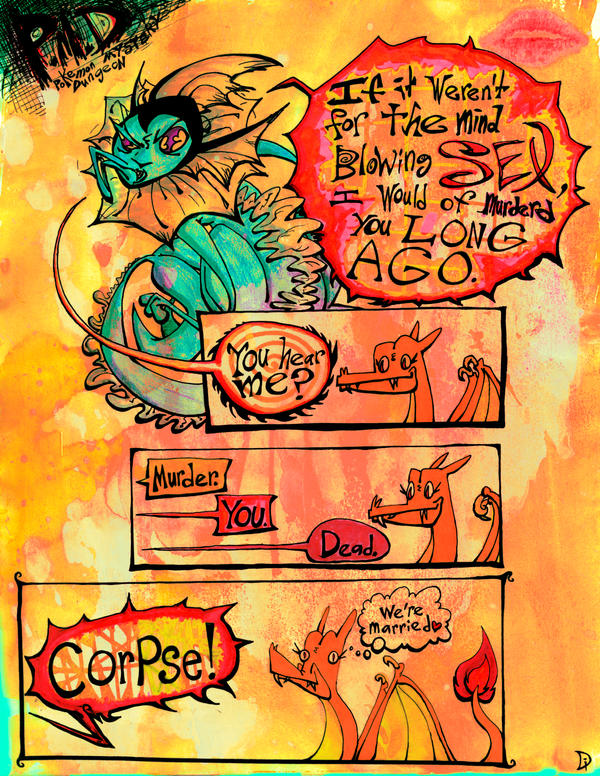 PMD
Pokemon Mystery
Dungeon
If it weren't
for the mind
Blowing SEX,
I would of murderd
you LONG
AGO.
You hear
me?
Murder.
You.
Dead.
Corpse!
We're
married♥